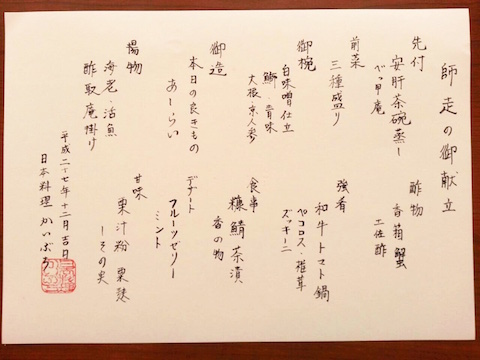 師走の御献立
先付
安肝茶碗蒸し
べっ甲庵
前菜
三種盛り
御椀
白味噌仕立
鰤 昔味
大根 京人参
御造
本日の良きもの
あしらい
揚物
海老・活魚
酢取庵掛け
酢物
香箱蟹
土佐酢
強肴
和牛トマト鍋
ペコロス・椎茸
ズッキーニ
食事
糠鯖茶漬
香の物
デザート
フルーツゼリー
ミント
甘味
栗汁粉 粟麩
しその実
平成二十七年十二月吉日
日本料理 かいぶろ